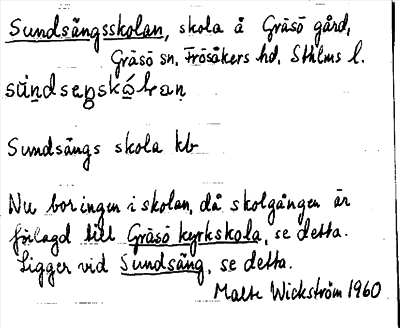 Sundsängsskolan, skola å Gräsö gård,
Gräsö sn, Frösåkers hd, Sthlms l.
Sundsängs skola kb
Nu bor ingen i skolan, då skolgången är
förlagd till Gräsö kyrkskola, se detta.
Ligger vid Sundsäng, se detta.
Malte Wickström 1960